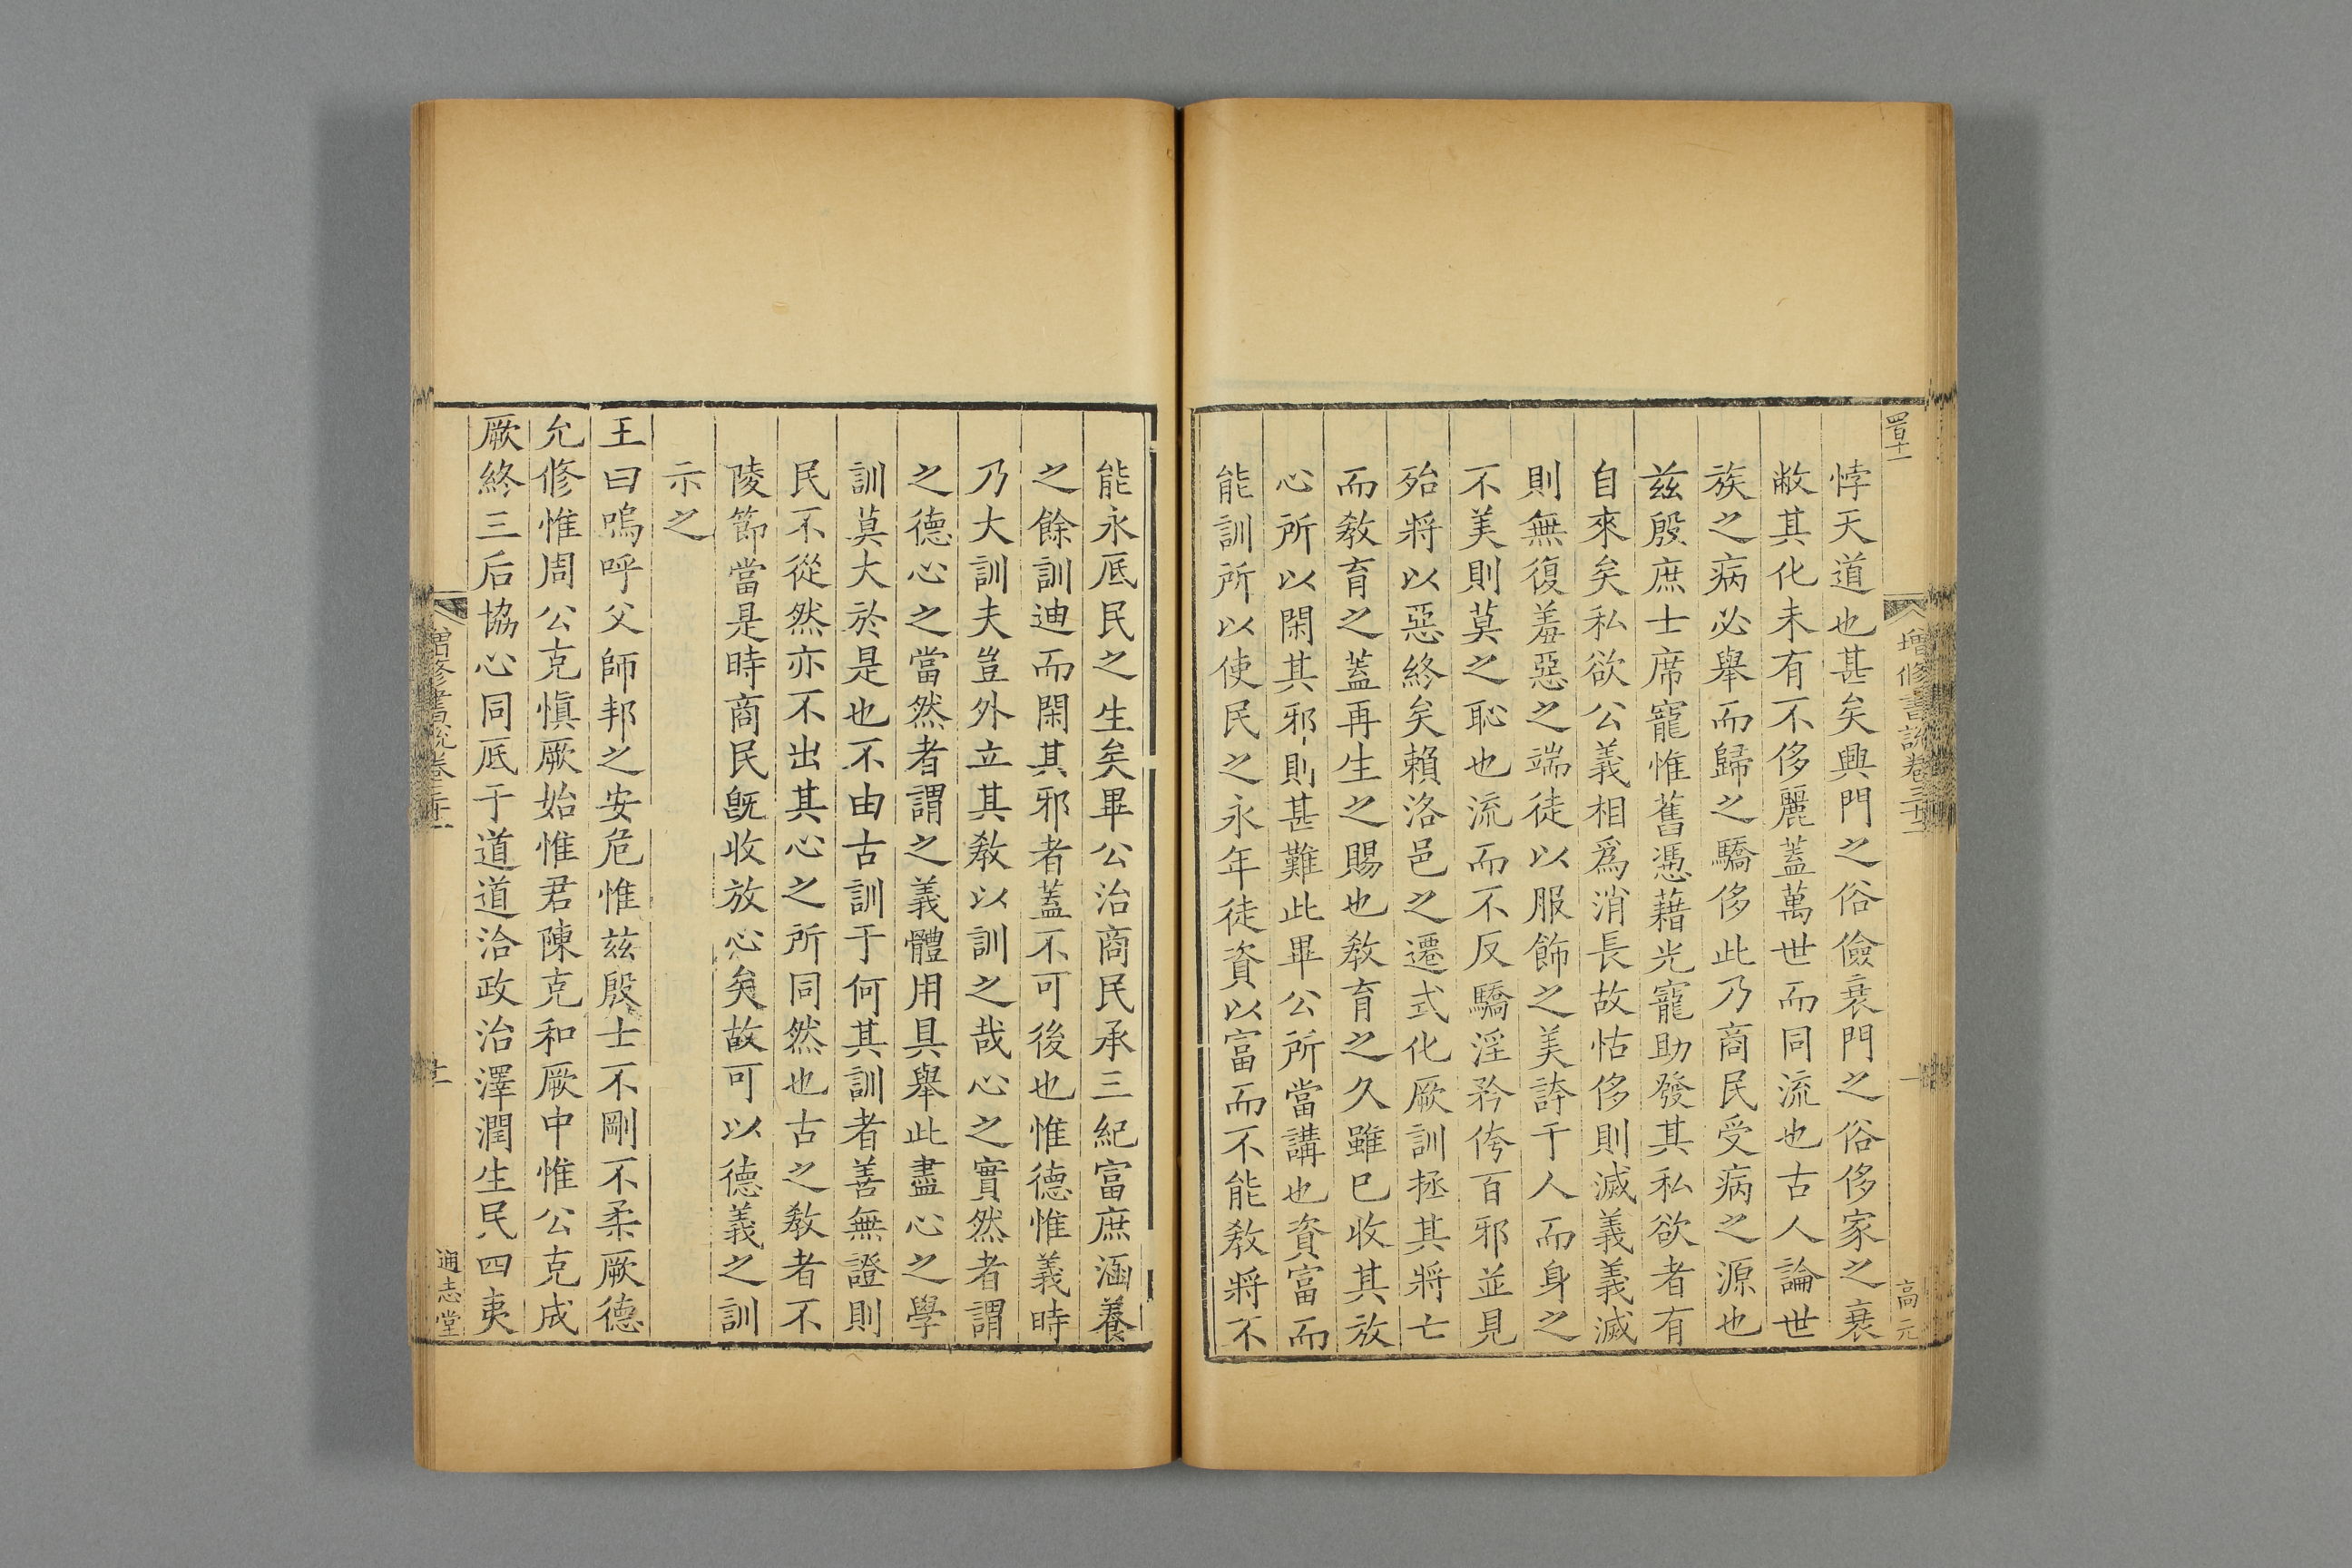 悖天道也甚矣興門之俗儉衰門之俗侈家之衰
敝其化未有不侈麗蓋萬世而同流也古人論世
族之病必舉而歸之驕侈此乃商民受病之源也
兹殷庶士席寵惟舊憑藉光寵助發其私欲者有
自來矣私欲公義相爲消長故怙侈則滅義義滅
則無復羞惡之端徒以服飾之美誇于人而身之
不美則莫之恥也流而不反驕淫矜侉百邪並見
殆將以惡終矣賴洛邑之遷式化厥訓拯其將亡
而敎育之蓋再生之賜也敎育之久雖已收其放
心所以閑其邪則甚難此畢公所當講也資富而
能訓所以使民之永年徒資以富而不能敎將不
能永厎民之生矣畢公治商民承三紀富庶涵養
之餘訓迪而閑其邪者蓋不可後也惟德惟義時
乃大訓夫豈外立其敎以訓之哉心之實然者謂
之德心之當然者謂之義體用具舉此盡心之學
訓莫大於是也不由古訓于何其訓者善無證則
民不從然亦不出其心之所同然也古之敎者不
陵節當是時商民旣收放心矣故可以德義之訓
示之
王曰嗚呼父師邦之安危惟兹殷士不剛不柔厥德
允修惟周公克愼厥始惟君陳克和厥中惟公克成
厥終三后協心同厎于道道洽政治澤潤生民四夷
增修書說卷三十二
高元
通志堂